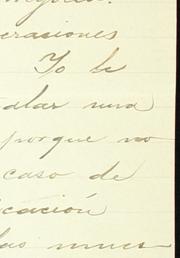 eraciones
Yo le
dar una
porque no
caso de
cación
las nues